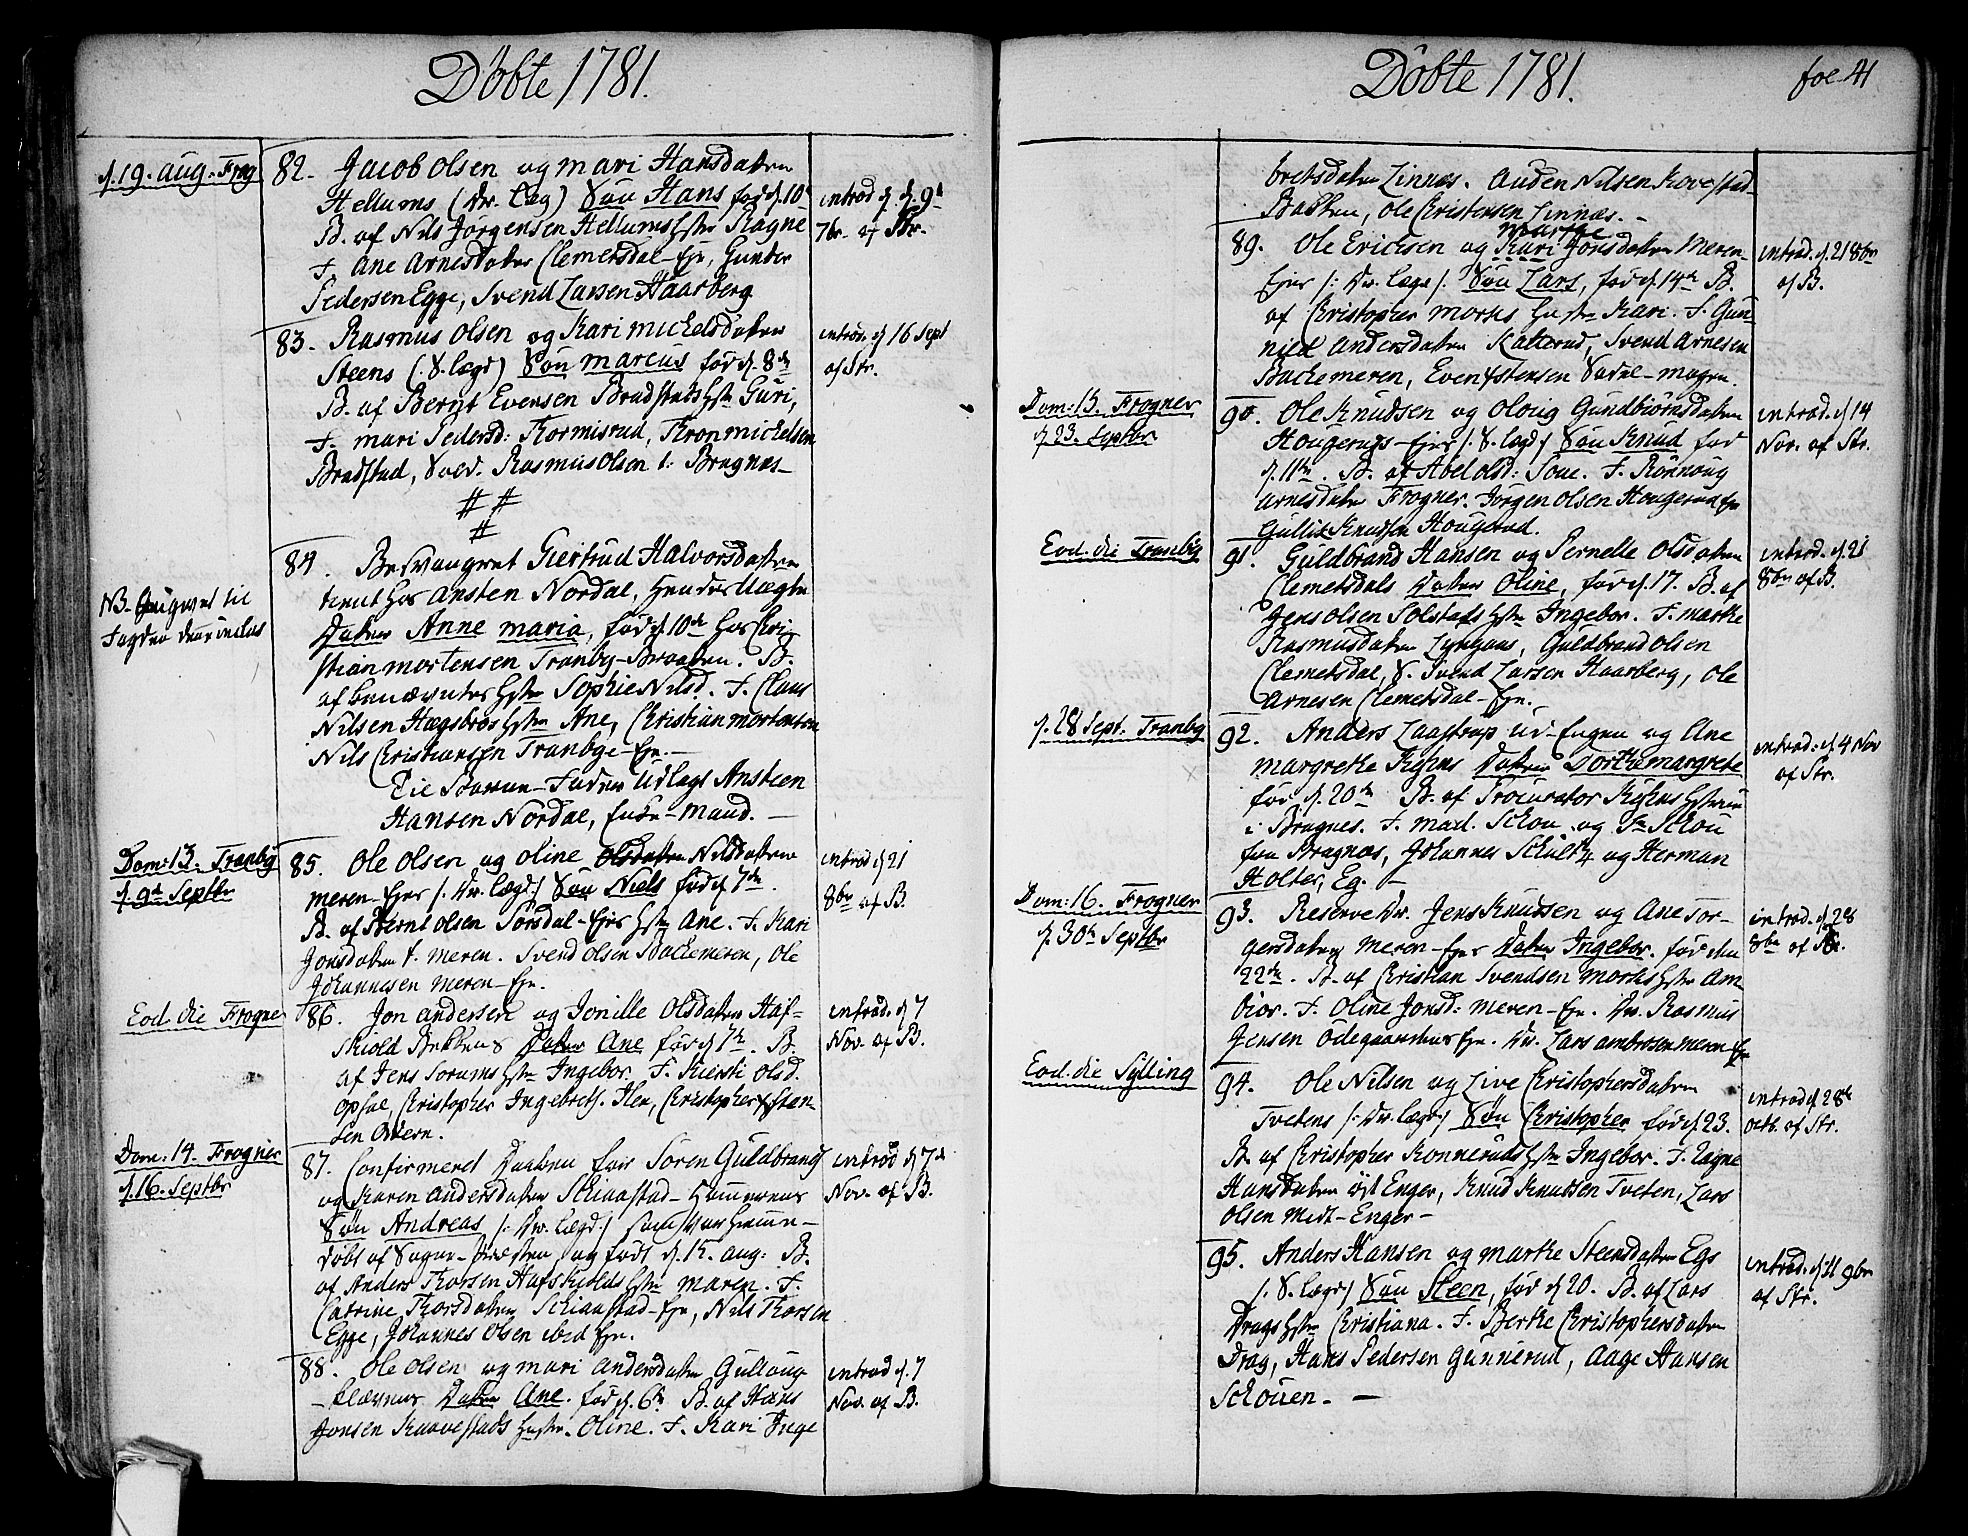 Döbte 1781.
d. 19. Aug. Frog
82. Jacob Olsen og Mari Hansdatter
Hellums (Dr. Læg) Søn Hans fød d. 10
B. af Nils Jørgensen Hellums Hstr Ragne
F. Ane Arnesdatter Clemetsdal-Eje, Gunder
Pedersen Egge, Svend Larsen Haarberg
introd d. 9d
7br. af Str.
83. Rasmus Olsen og Kari Mickelsdatter
Steens (S. lægd) Søn Marcus fød d. 8de
B. af Bernt Evensen Bradstads Hstr Guri,
F. Mari Pedersd: Kormisrud, Tron Mickelsen
Bradstad, Sold. Rasmus Olsen i Bragnæs
introd. d 16 Sept
af Str.
# #
#
84. Besvangret Giertrud Halvorsdatter
tient hos Ansten Nordal, hendes Uægte
Datter Anne Maria, fød d. 10de hos Chri-
stian Mortensen Tranby-Braaten. B.
af benævntes Hstr Sophie Nilsd. F. Claus
Nilsen Hægsbros Hstr Ane, Christian Mortensen
Nils Christiansen Tranbye-Eje.
Til Barne-Fader Udlagt Ansteen
Hansen Nordal, Enke-Mand.
NB. Angivet til
Fogden
Dom: 13. Tranby
d. 9d Septbr
85. Ole Olsen og Oline Olsdatter Nilsdatter
Meren-Ejes /: Dr. lægd / Søn Niels fød d 7de.
B. af Bernt Olsen Sørsdal-Ejes Hstr Ane. F. Kari
Jonsdatter f. Meren. Svend Olsen Backemeren, Ole
Johannesen Meren-Eje.
introd d 21
8br af B.
Eod. die Frogner
86. Jon Andersen og Jonille Olsdatter Haf-
skiold Bekkens Datter Ane fød d 7de. B.
af Jens Sorums Hstr Ingebor. F. Kiersti Olsd.
Opsal, Christopher Ingebreths. Ilen, Christopher Østen-
sen Overn.
introd. d 7
Nov. af B.
Dom: 14. Frogner
d. 16. Septbr
87. Confirmeret Daaben for Søren Guldbrands
og Karen Andersdatter Schiaastad-
Søn Andreas /: Dr. lægd / som var hiemme-
døbt af Sogne-Præsten og født d. 15. Aug: B.
af Anders Thorsen Hafskiolds Hstr Maren. F.
Catrine Thorsdatter Schiaastad-Eje, Nils Thorsen
Egge, Johannes Olsen ibid Eje.
introd d 7de
Nov. af B.
88. Ole Olsen og Mari Andersdatter Gulloug
-Kleevens Datter Ane. fød d. 6te B. af Hans
Jonsen Kaavestads Hustr. Oline. F. Kari Inge
introd d. 7
Nov. af B.
Döbte 1781.
fol 41
bretsdatter Linnæs. Auden Nilsen Kovestad-
Backen, Ole Christensen Linnæs.
89. Ole Ericksen og Marthe Kari Jonsdatter Meren-
Ejes /: Dr. Lægd /. Søn Lars, fød d 14de B.
af Christopher Mortes Hustr Kari. F. Gun-
nild Andersdatter Kalterud, Svend Arnesen
Backemeren, Even Østensen Sadel-mager.
introd. d. 21 8br
af B.
Dom: 15. Frogner
d. 23. Septbr
90. Ole Knudsen og Oloug Gundbiørnsdatter
Hougeruds-Ejes /: S. lægd / Søn Knud fød
d. 11te. B. af Abel Olsd: Soue. F. Rønnoug
Arnesdatter Frogner. Jørgen Olsen Hougerud Eje
Gullik Knudsen Hougerud.
introd. d 14
Nov. af Str.
Eod. die Tranby
91. Guldbrand Hansen og Pernelle Olsdatter
Clemetsdals Datter Oline, fød d. 17. B. af
Jens Olsen Solstads Hstr Ingebor. F. Marthe
Rasmusdatter Lyngaas, Guldbrand Olsen
Clemetsdal, S. Svend Larsen Haarberg, Ole
Arnesen Clemetsdal-Eje.
introd. d. 21
8br af B.
d. 28 Sept. Tranby
92. Anders Laastrup Ud-Engen og Ane
Margrethe Datter Dorthe Margrete
fød d. 20de B. af Procurator
i Bragnes. F. Mad. Schou og Sr Schou
fra Bragnæs, Johannes Schultz og Herman
Holter, Eg.
introd: d 4 Nov
af Str.
Dom: 16. Frogner
d. 30te Septbr
93. Reserve Dr. Jens Knudsen og Ane Tor-
gersdatter Meren-Ejes Datter Ingebor. fød den
22de. B. af Christian Svendsen Mortes Hstr Am-
biør. F. Oline Jonsd: Meren-Eje. Dr. Rasmus
Jensen Ödegaardens Eje. Dr. Lars Ambrosen Meren-Eje
introd. d 28
8br af Str.
Eod. die Sylling
94. Ole Nilsen og Live Christophersdatter
Tvetens /: Dr. lægd / Søn Christopher fød d. 23.
B. af Christopher Konneruds Hstr Ingebor. F. Ragne
Hansdatter Øst Enger, Knud Knudsen Tveten, Lars
Olsen Midt-Enger-
introd d 28de
Octb. af Str.
95. Anders Hansen og Marthe Steensdatter Egs
/: S. Lægd / Søn Steen, fød d 20. B. af Lars
Drags Hstr Christiana. F. Berthe Christophersdatter
Drag, Hans Pedersen Gunnerud, Aage Hansen
Schouen.
introd. d 11 9br
af Str.